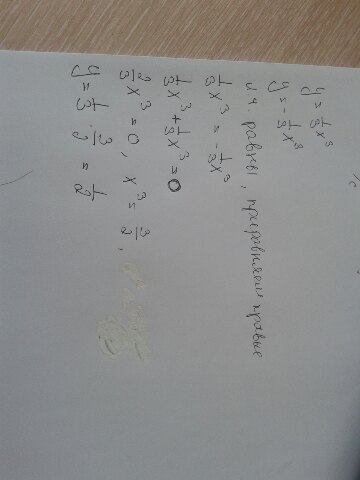 y = 1/3 x³
y = - 1/3 x³
л.ч. равны, приравняем правые
1/3 x³ = - 1/3 x³
1/3 x³ + 1/3 x³ = 0
2/3 x³ = 0, x³ = 3/2,
y = 1/3 · 3/2 = 1/2